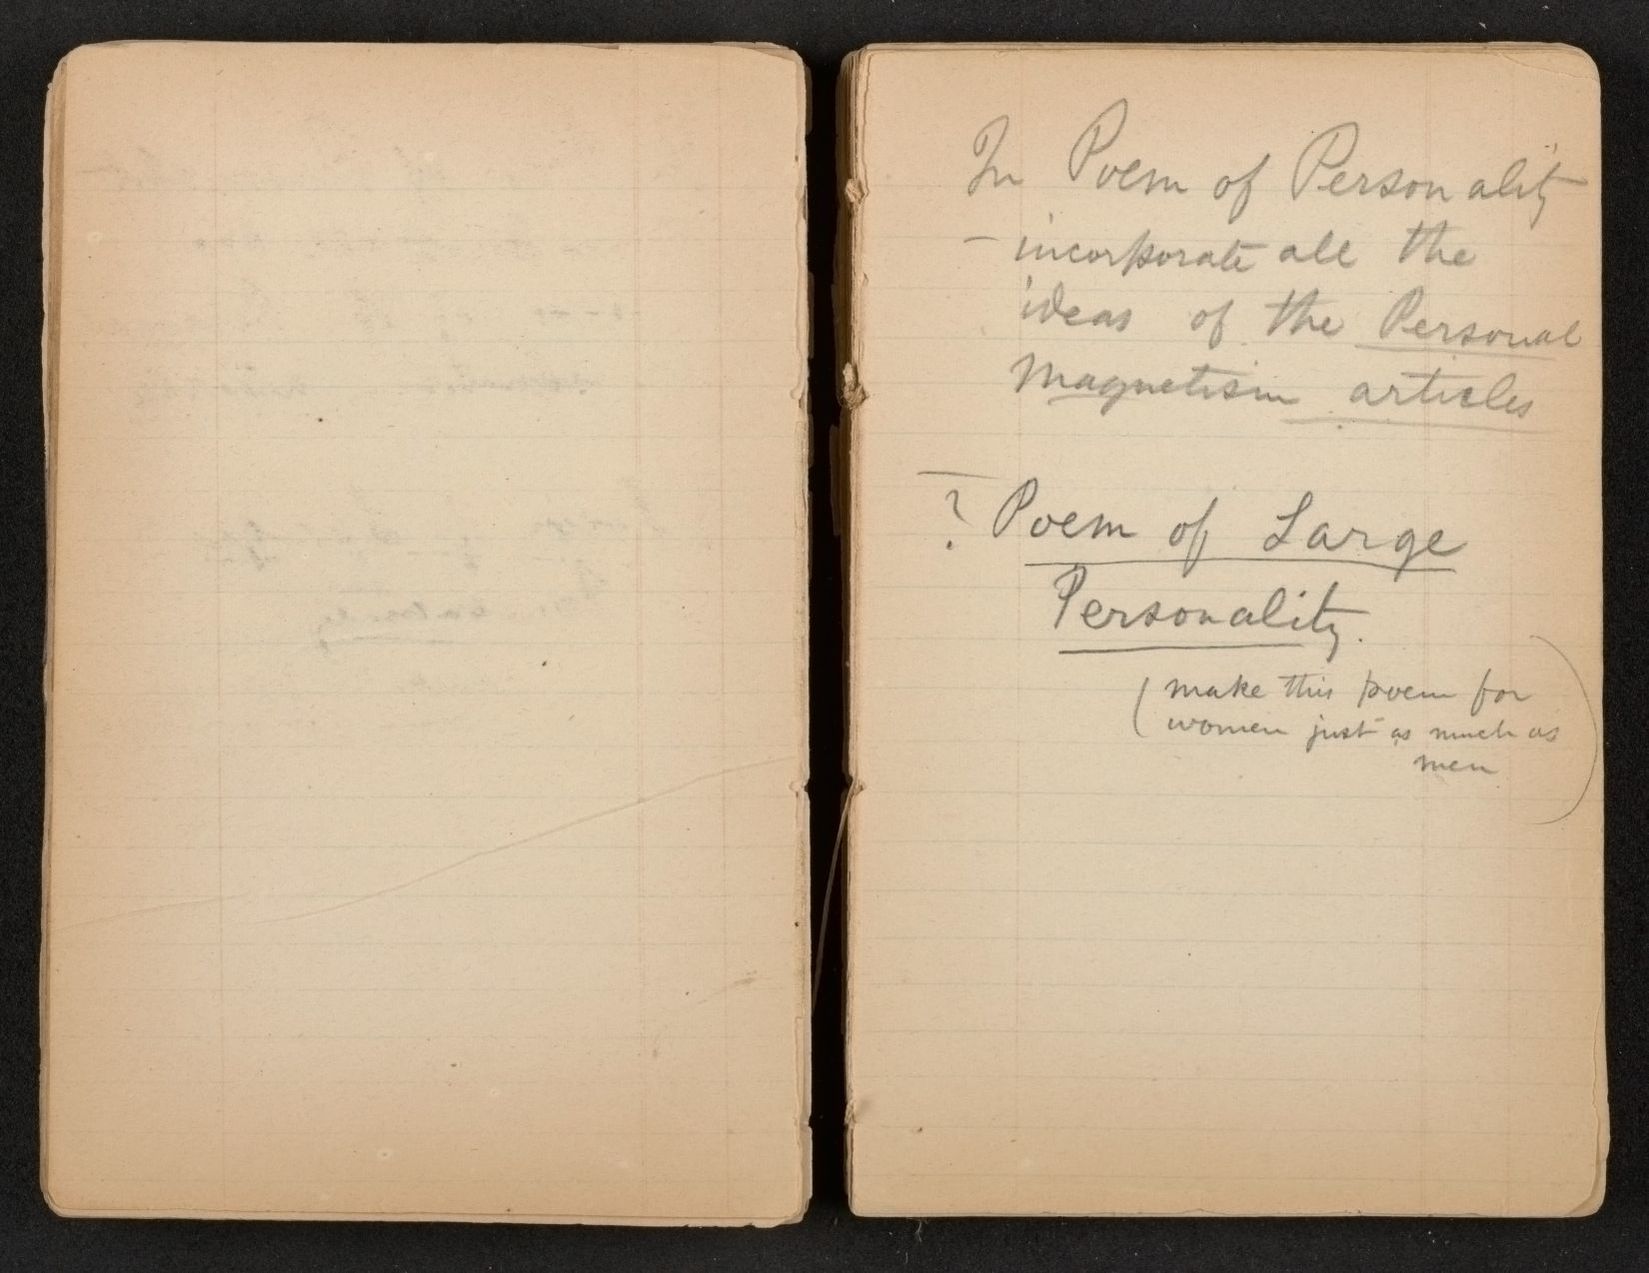 In Poem of Personality
– incorporate all the
ideas of the Personal
Magnetism articles
? Poem of Large
Personality.
( make this poem for
women just as much as
men )